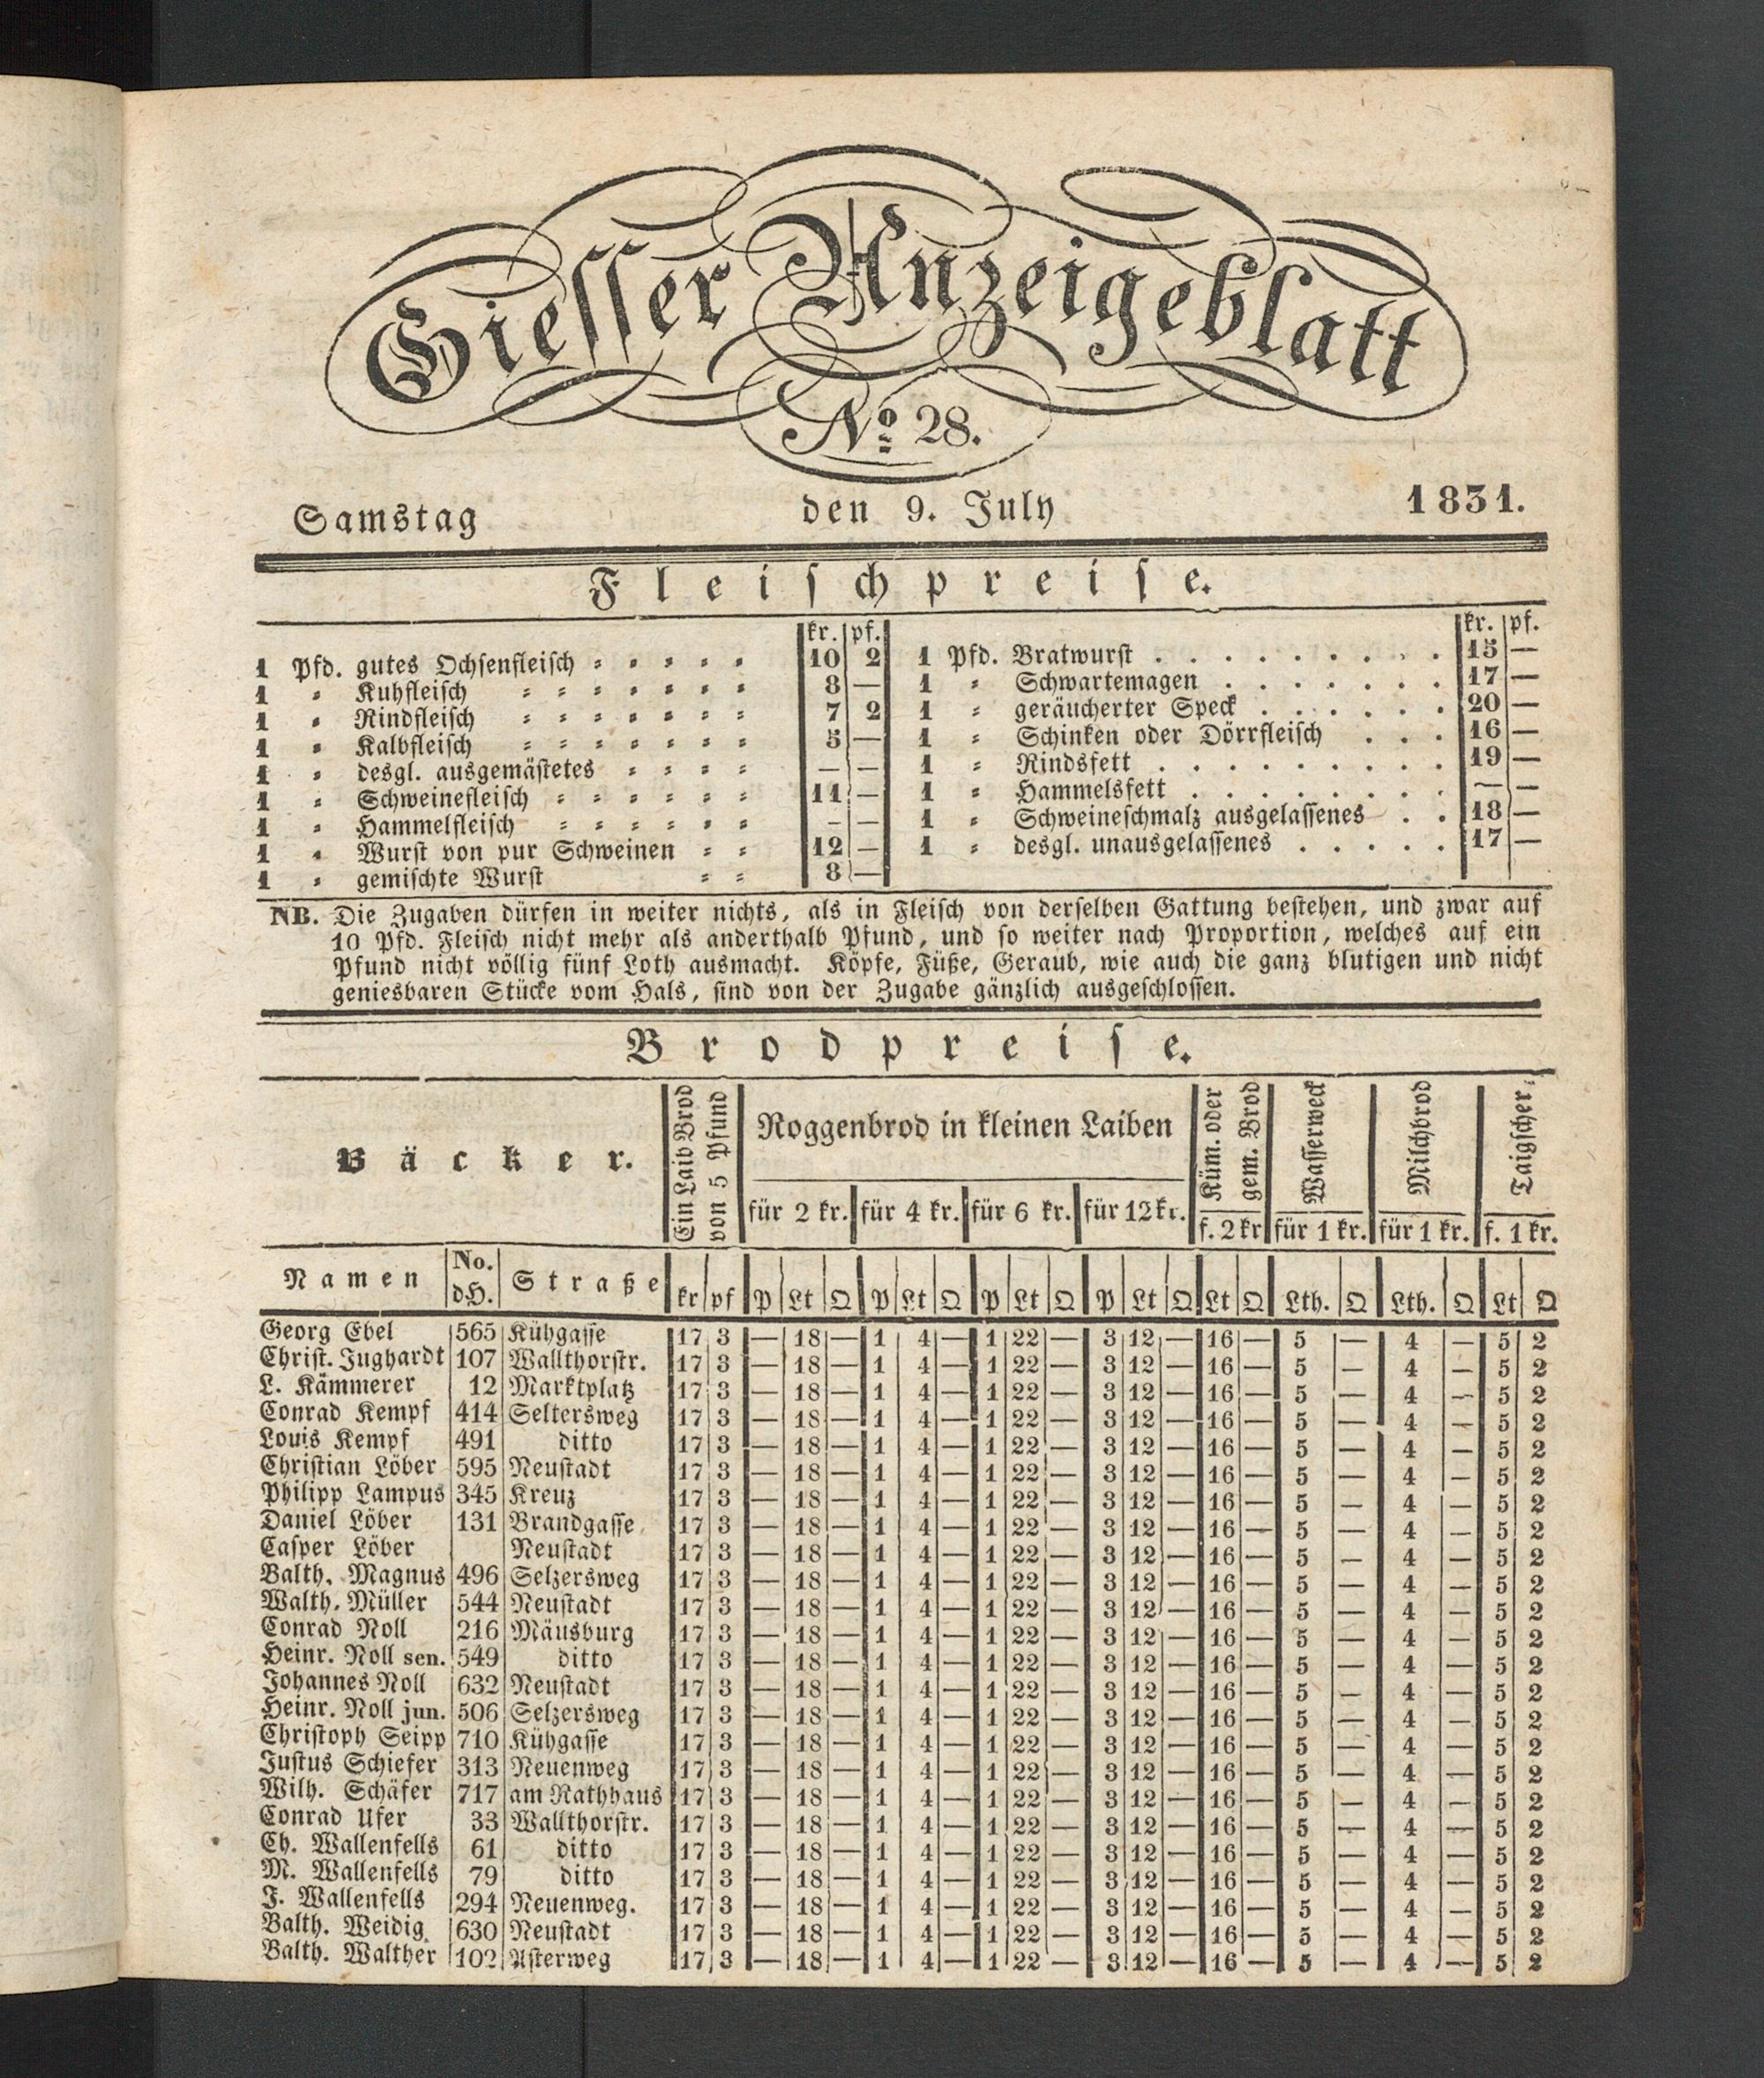 Giesser Anzeigeblatt
No 28.
Samstag den 9. July 1831.
Fleischpreise.
kr. pf. kr. pf.
1 Pfd. gutes Ochsenfleisch 10 2 1 Pfd. Bratwurst 15 —
1 " Kuhfleisch 8 — 1 " Schwartemagen 17 —
1 " Rindfleisch 7 2 1 " geräucherter Speck 20 —
1 " Kalbfleisch 5 — 1 " Schinken oder Dörrfleisch 16 —
1 " desgl. ausgemästetes — — 1 " Rindsfett 19 —
1 " Schweinefleisch 11 — 1 " Hammelsfett — —
1 " Hammelfleisch — — 1 " Schweineschmalz ausgelassenes 18 —
1 " Wurst von pur Schweinen 12 — 1 " desgl. unausgelassenes 17 —
1 " gemischte Wurst 8 —
NB. Die Zugaben dürfen in weiter nichts, als in Fleisch von derselben Gattung bestehen, und zwar auf
10 Pfd. Fleisch nicht mehr als anderthalb Pfund, und so weiter nach Proportion, welches auf ein
Pfund nicht völlig fünf Loth ausmacht. Köpfe, Füße, Geraub, wie auch die ganz blutigen und nicht
geniesbaren Stücke vom Hals, sind von der Zugabe gänzlich ausgeschlossen.
Brodpreise.
Bäcker.
Ein Laib Brod
von 5 Pfund
Roggenbrod in kleinen Laiben
für 2 kr. für 4 kr. für 6 kr. für 12 kr.
Küm. oder
gem. Brod
f. 2 kr
Wasserweck
für 1 kr.
Milchbrod
für 1 kr.
Taigscher-
f. 1 kr.
Namen No. d.H. Straße kr pf P Lt Q P Lt Q P Lt Q P Lt Q Lt Q Lth. Q Lth. Q Lt Q
Georg Ebel 565 Kühgasse 17 3 — 18 — 1 4 — 1 22 — 3 12 — 16 — 5 — 4 — 5 2
Christ. Jughardt 107 Wallthorstr. 17 3 — 18 — 1 4 — 1 22 — 3 12 — 16 — 5 — 4 — 5 2
L. Kämmerer 12 Marktplatz 17 3 — 18 — 1 4 — 1 22 — 3 12 — 16 — 5 — 4 — 5 2
Conrad Kempf 414 Seltersweg 17 3 — 18 — 1 4 — 1 22 — 3 12 — 16 — 5 — 4 — 5 2
Louis Kempf 491 ditto 17 3 — 18 — 1 4 — 1 22 — 3 12 — 16 — 5 — 4 — 5 2
Christian Löber 595 Neustadt 17 3 — 18 — 1 4 — 1 22 — 3 12 — 16 — 5 — 4 — 5 2
Philipp Lampus 345 Kreuz 17 3 — 18 — 1 4 — 1 22 — 3 12 — 16 — 5 — 4 — 5 2
Daniel Löber 131 Brandgasse 17 3 — 18 — 1 4 — 1 22 — 3 12 — 16 — 5 — 4 — 5 2
Casper Löber Neustadt 17 3 — 18 — 1 4 — 1 22 — 3 12 — 16 — 5 — 4 — 5 2
Balth. Magnus 496 Selzersweg 17 3 — 18 — 1 4 — 1 22 — 3 12 — 16 — 5 — 4 — 5 2
Walth. Müller 544 Neustadt 17 3 — 18 — 1 4 — 1 22 — 3 12 — 16 — 5 — 4 — 5 2
Conrad Noll 216 Mäusburg 17 3 — 18 — 1 4 — 1 22 — 3 12 — 16 — 5 — 4 — 5 2
Heinr. Noll sen. 549 ditto 17 3 — 18 — 1 4 — 1 22 — 3 12 — 16 — 5 — 4 — 5 2
Johannes Noll 632 Neustadt 17 3 — 18 — 1 4 — 1 22 — 3 12 — 16 — 5 — 4 — 5 2
Heinr. Noll jun. 506 Selzersweg 17 3 — 18 — 1 4 — 1 22 — 3 12 — 16 — 5 — 4 — 5 2
Christoph Seipp 710 Kühgasse 17 3 — 18 — 1 4 — 1 22 — 3 12 — 16 — 5 — 4 — 5 2
Justus Schiefer 313 Neuenweg 17 3 — 18 — 1 4 — 1 22 — 3 12 — 16 — 5 — 4 — 5 2
Wilh. Schäfer 717 am Rathhaus 17 3 — 18 — 1 4 — 1 22 — 3 12 — 16 — 5 — 4 — 5 2
Conrad Ufer 33 Wallthorstr. 17 3 — 18 — 1 4 — 1 22 — 3 12 — 16 — 5 — 4 — 5 2
Ch. Wallenfells 61 ditto 17 3 — 18 — 1 4 — 1 22 — 3 12 — 16 — 5 — 4 — 5 2
M. Wallenfells 79 ditto 17 3 — 18 — 1 4 — 1 22 — 3 12 — 16 — 5 — 4 — 5 2
J. Wallenfells 294 Neuenweg. 17 3 — 18 — 1 4 — 1 22 — 3 12 — 16 — 5 — 4 — 5 2
Balth. Weidig 630 Neustadt 17 3 — 18 — 1 4 — 1 22 — 3 12 — 16 — 5 — 4 — 5 2
Balth. Walther 102 Asterweg 17 3 — 18 — 1 4 — 1 22 — 3 12 — 16 — 5 — 4 — 5 2